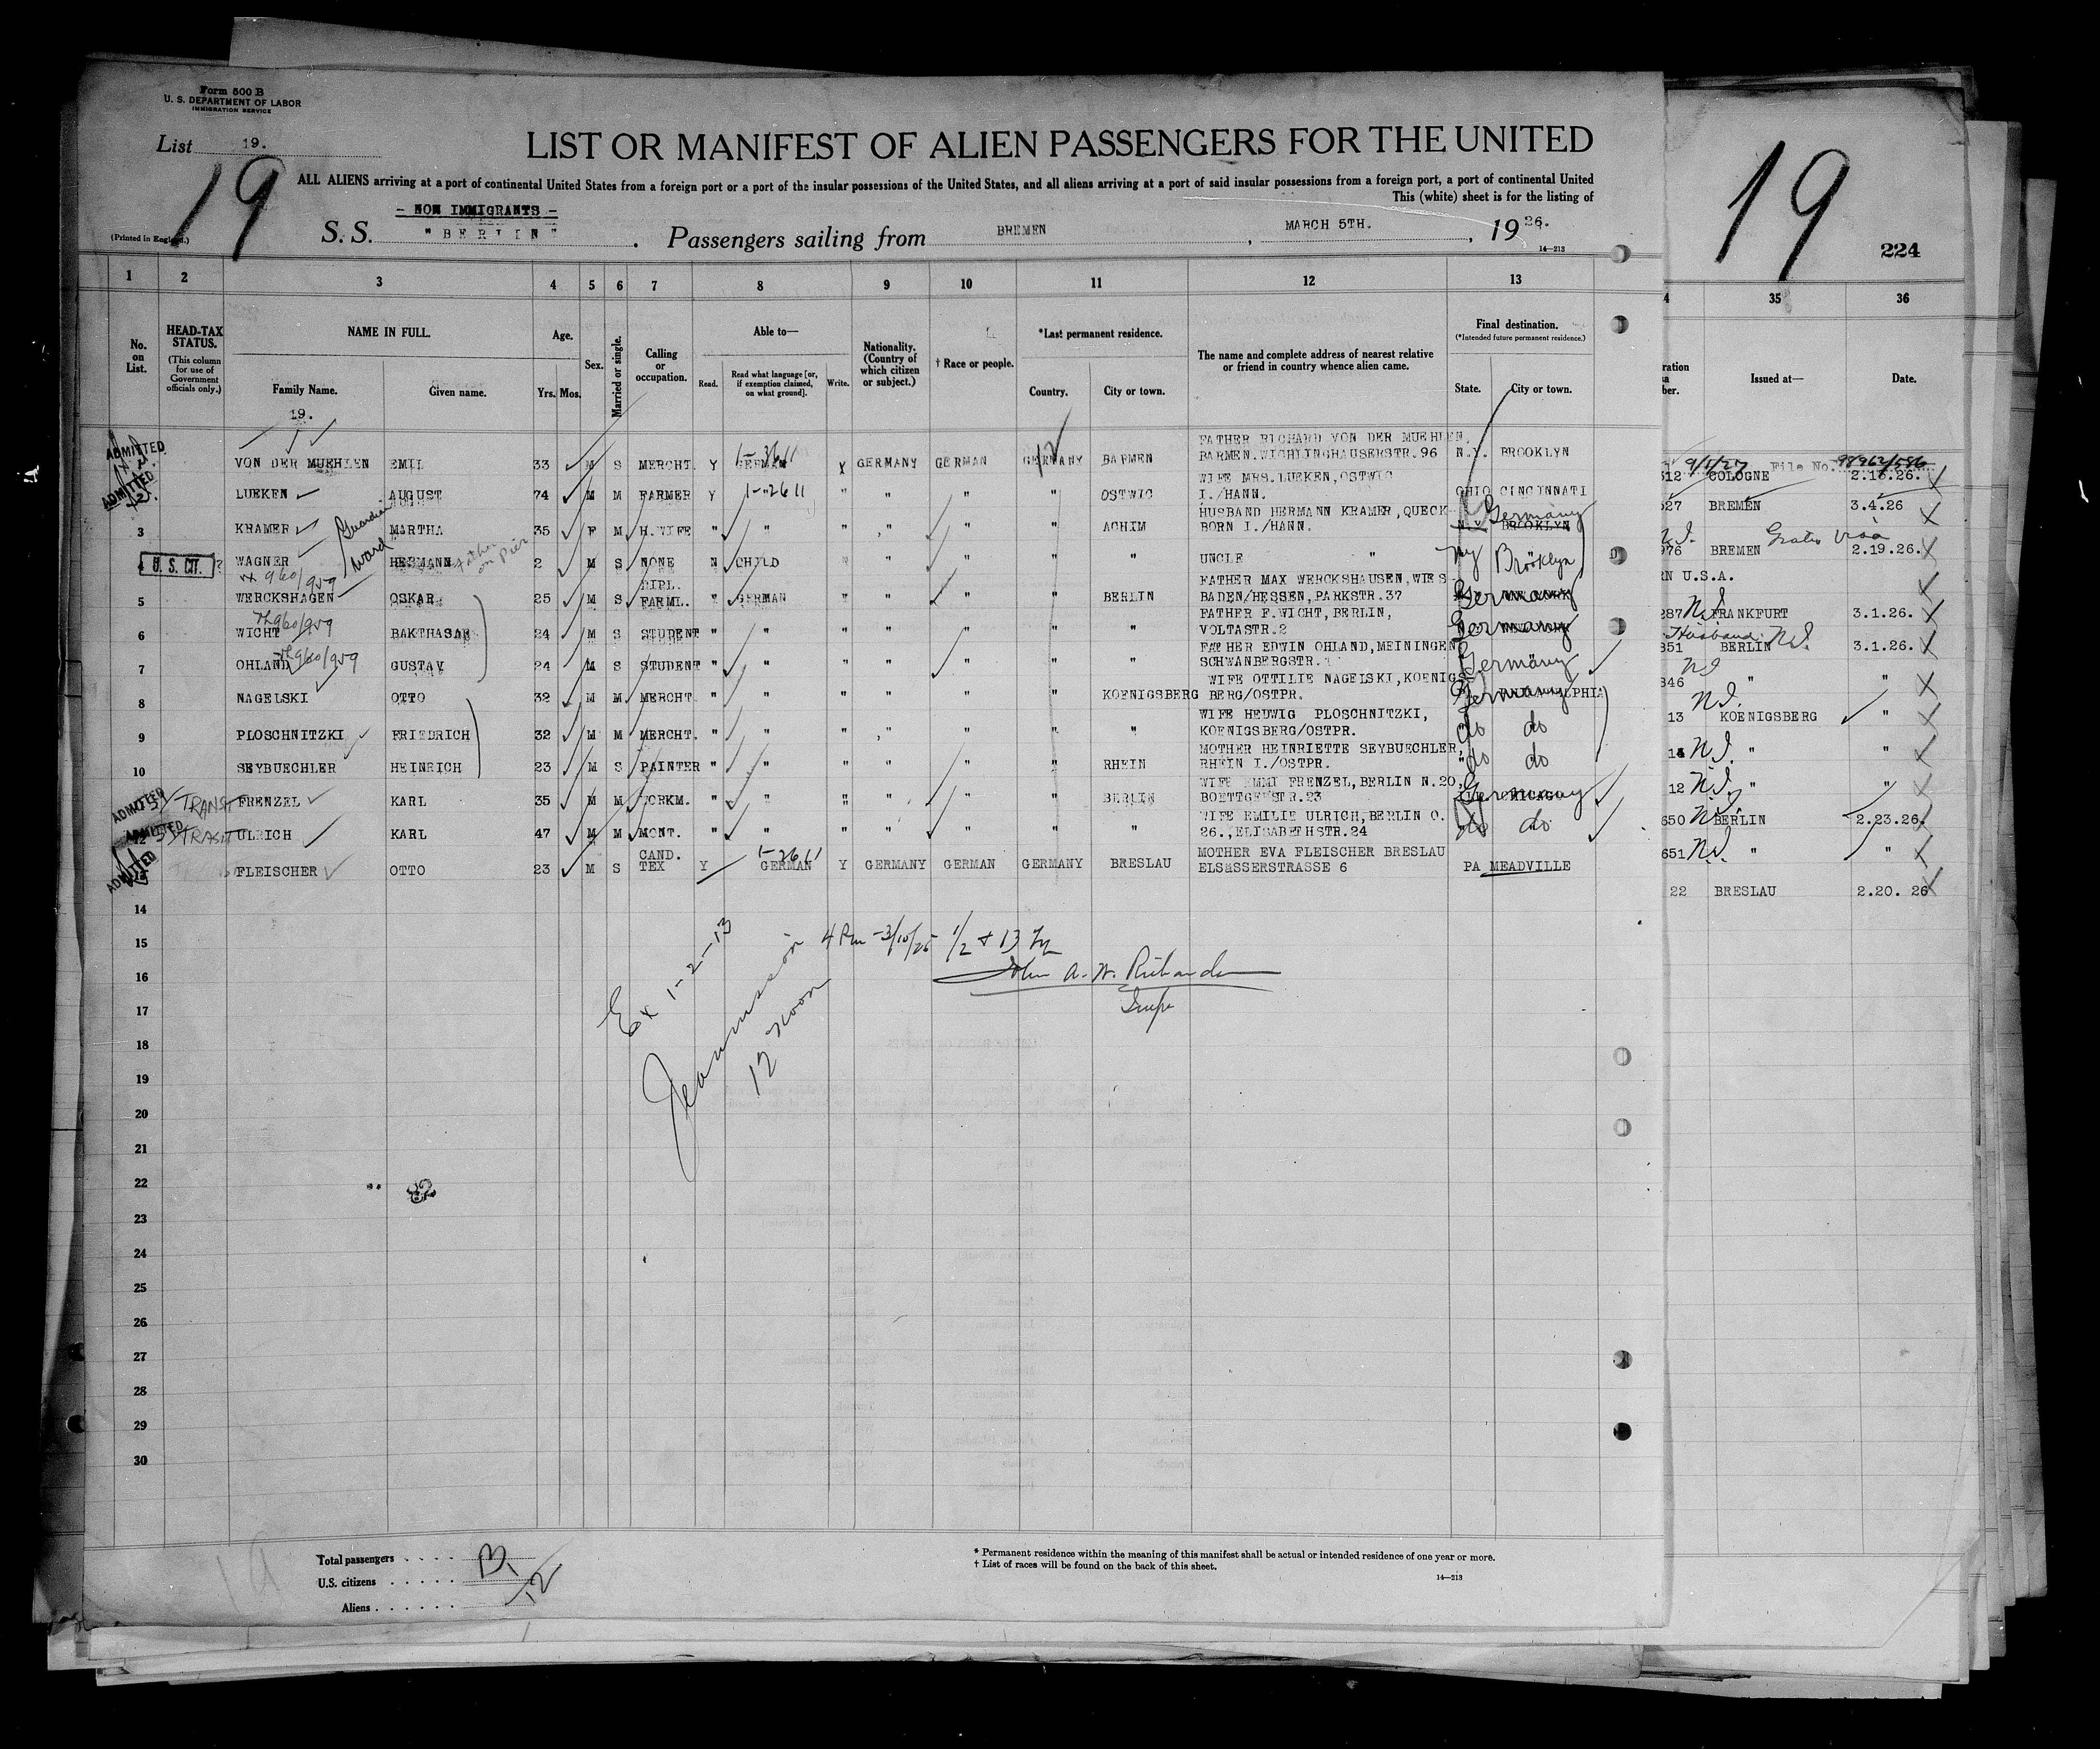 Form 500 B
U. S. DEPARTMENT OF LABOR
IMMIGRATION SERVICE
List 19.
19
LIST OR MANIFEST OF ALIEN PASSENGERS FOR THE UNITED
ALL ALIENS arriving at a port of continental United States from a foreign port or a port of the insular possessions of the United States, and all aliens arriving at a port of said insular possessions from a foreign port, a port of continental United
This (white) sheet is for the listing of
- NON IMMIGRANTS -
(Printed in England.)
S. S. "BERLIN" . Passengers sailing from BREMEN , MARCH 5TH. , 1926.
14—213
19
224
1 2 3 4 5 6 7 8 9 10 11 12 13 35 36
No. on List.
HEAD-TAX STATUS. (This column for use of Government officials only.)
NAME IN FULL.
Family Name. Given name.
Age. Yrs. Mos.
Sex.
Married or single.
Calling or occupation.
Able to—
Read. Read what language [or, if exemption claimed, on what ground]. Write.
Nationality. (Country of which citizen or subject.)
† Race or people.
*Last permanent residence.
Country. City or town.
The name and complete address of nearest relative or friend in country whence alien came.
Final destination. (*Intended future permanent residence.)
State. City or town.
Issued at— Date.
19.
ADMITTED VON DER MUEHLEN EMIL 33 M S MERCHT. Y GERMAN Y GERMANY GERMAN GERMANY BARMEN FATHER RICHARD VON DER MUEHLEN, BARMEN.WICHLINGHAUSERSTR.96 N.Y. BROOKLYN 312 COLOGNE 2.16.26.
9/1/27 File No. 98962/586
ADMITTED LUEKEN AUGUST 74 M M FARMER Y " " " " " OSTWIG WIFE MRS.LUEKEN,OSTWIG I./HANN. OHIO CINCINNATI 527 BREMEN 3.4.26
3 KRAMER MARTHA 35 F M H.WIFE " " " " " " ACHIM HUSBAND HERMANN KRAMER,QUECK- BORN I./HANN. N.Y. BROOKLYN Germany 976 BREMEN 2.19.26.
Guardian
N.I. Gratis Visa
U. S. CIT. ? WAGNER HERMANN 2 M S NONE N CHILD N " " " " UNCLE " NY Bröoklyn RN U.S.A.
Ward
Father on Pier
960/959
5 WERCKSHAGEN OSKAR 25 M S DIPL. FARML. " GERMAN " " " " BERLIN FATHER MAX WERCKSHAUSEN,WIES- BADEN/HESSEN,PARKSTR.37 Germany 287 N.I. FRANKFURT 3.1.26.
960/959
6 WICHT BAKTHASAR 24 M S STUDENT " " " " " " " FATHER F.WICHT,BERLIN, VOLTASTR.2 Germany 351 BERLIN N.I. 3.1.26.
Husband
960/959
7 OHLAND GUSTAV 24 M S STUDENT " " " " " " " FATHER EDWIN OHLAND,MEININGEN SCHWANBERGSTR. Germany 346 N.I. " "
8 NAGELSKI OTTO 32 M M MERCHT. " " " " " " KOENIGSBERG WIFE OTTILIE NAGELSKI,KOENIGS- BERG/OSTPR. Germany 13 N.I. KOENIGSBERG "
9 PLOSCHNITZKI FRIEDRICH 32 M M MERCHT. " " " " " " " WIFE HEDWIG PLOSCHNITZKI, KOENIGSBERG/OSTPR. do do 14 N.I. " "
10 SEYBUECHLER HEINRICH 23 M S PAINTER " " " " " " RHEIN MOTHER HEINRIETTE SEYBUECHLER, RHEIN I./OSTPR. do do 12 N.I. " "
ADMITTED TRANSIT FRENZEL KARL 35 M M WORKM. " " " " " " BERLIN WIFE EMMI FRENZEL,BERLIN N.20, BOETTGERSTR.23 ILL. CHICAGO Germany 650 N.I. BERLIN 2.23.26.
ADMITTED 12 ULRICH KARL 47 M M MONT. " " " " " " " WIFE EMILIE ULRICH,BERLIN O. 26.,ELISABETHSTR.24 do do 651 N.I. " "
ADMITTED FLEISCHER OTTO 23 M S CAND. TEX Y GERMAN Y GERMANY GERMAN GERMANY BRESLAU MOTHER EVA FLEISCHER BRESLAU ELSASSERSTRASSE 6 PA MEADVILLE 22 BRESLAU 2.20. 26
14
15
16
17
18
19
20
21
22
23
24
25
26
27
28
29
30
Ex 1-2-13
12 noon
John A. W. Richards
82
Total passengers . . . . 13
U.S. citizens . . . . . 1
Aliens . . . . . . 12
* Permanent residence within the meaning of this manifest shall be actual or intended residence of one year or more.
† List of races will be found on the back of this sheet.
14—213